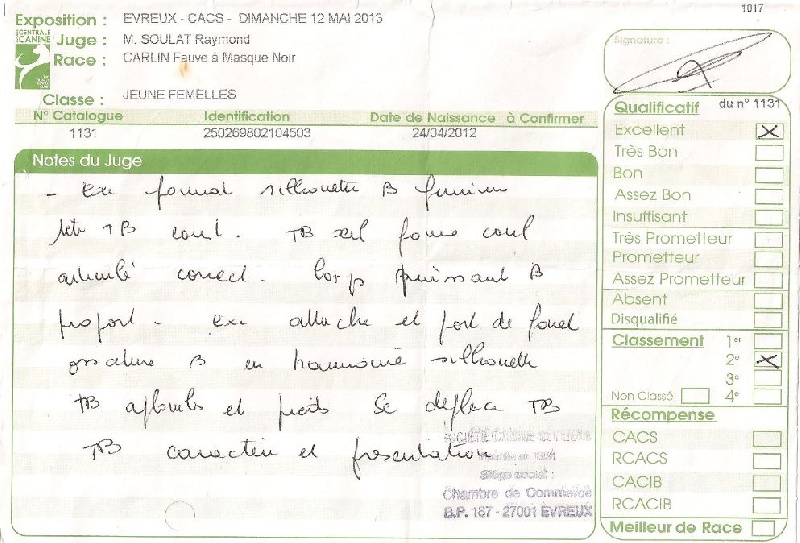 1017
Exposition : EVREUX - CACS - DIMANCHE 12 MAI 2013
CENTRALE CANINE
Juge : M. SOULAT Raymond
Race : CARLIN Fauve à Masque Noir
Classe : JEUNE FEMELLES
N° Catalogue Identification Date de Naissance à Confirmer
1131 250269802104503 24/04/2012
Notes du Juge
- Exc format silhouette B féminin
tête TB TB œil
correct. Corps puissant B
proport- exc attache et port de fouet
ossature B en harmonie silhouette
TB aplombs et pieds Se déplace TB
TB caractère et présentation
SOCIÉTÉ CANINE
Siège social :
Chambre de Commerce
B.P. 187 - 27001 EVREUX
Signature :
Qualificatif du n° 1131
Excellent X
Très Bon
Bon
Assez Bon
Insuffisant
Très Prometteur
Prometteur
Assez Prometteur
Absent
Disqualifié
Classement 1er
2e X
3e
Non Classé 4e
Récompense
CACS
RCACS
CACIB
RCACIB
Meilleur de Race